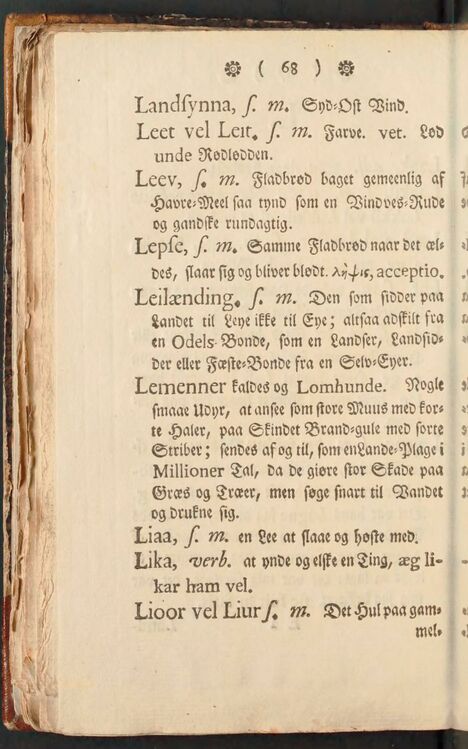 ( 68 )
Landsynna, s. m. Syd-Ost Vind.
Leet vel Leit. s. m. Farve. vet. Lod
unde Rodlodden.
Leev, s. m. Fladbrød baget gemeenlig af
Havre-Meel saa tynd som en Vindves-Rude
og gandske rundagtig.
Lepse, s. m. Samme Fladbrød naar det æl-
des, slaar sig og bliver blødt. λῆψις, acceptio.
Leilænding. s. m. Den som sidder paa
Landet til Leye ikke til Eye; altsaa adskilt fra
en Odels-Bonde, som en Landser, Landsid-
der eller Fæste-Bonde fra en Selv-Eyer.
Lemenner kaldes og Lomhunde. Nogle
smaae Udyr, at ansee som store Muus med kor-
te Haler, paa Skindet Brand-gule med sorte
Striber; sendes af og til, som en Lande-Plage i
Millioner Tal, da de giøre stor Skade paa
Græs og Træer, men søge snart til Vandet
og drukne sig.
Liaa, s. m. en Lee at slaae og høste med.
Lika, verb. at ynde og elske en Ting, æg li-
kar ham vel.
Lioor vel Liur s. m. Det Hul paa gam-
mel-